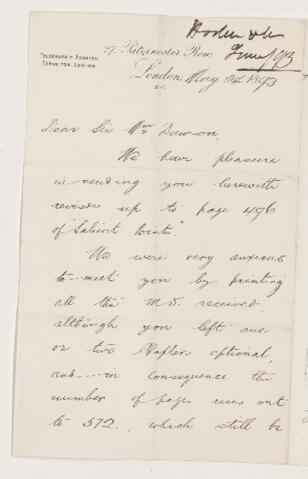 Hodder & Co
June/93
TELEGRAPHIC ADDRESS,
EXPOSITOR, LONDON.
27, Paternoster Row,
London, May 1893
Dear Sir Wm Dawson,
We have pleasure
in sending you herewith
revises up to page 496
of "Salient Points."
We were very anxious
to meet you by printing
all the MS received,
although you left one
or two chapters optional,
and in consequence the
number of pages runs out
to 572, which still be